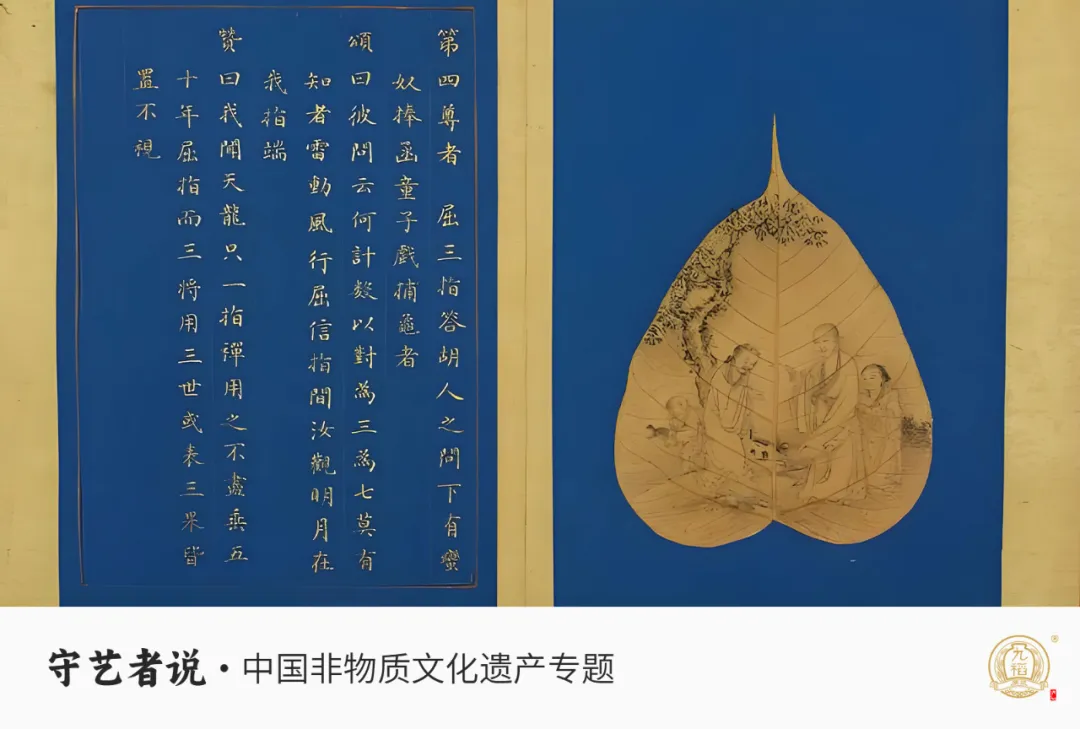 第四尊者 屈三指答胡人之問下有蠻
奴捧函童子戲捕龜者
頌曰彼問云何計數以對為三為七莫有
知者雷動風行屈信指間汝觀明月在
我指端
贊曰我聞天龍只一指禪用之不盡垂五
十年屈指而三將用三世或表三果皆
置不視
守艺者说·中国非物质文化遗产专题
九稻
®